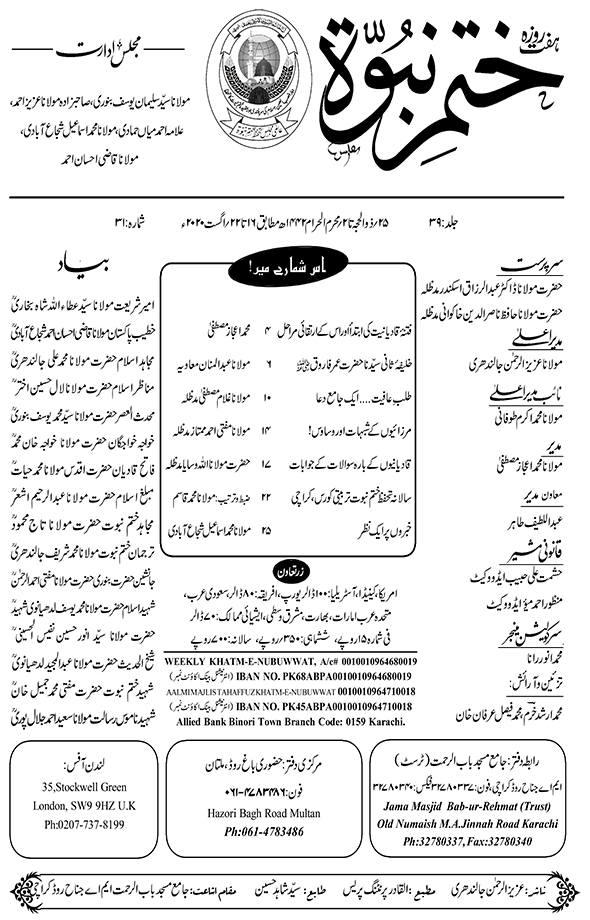 ہفت روزہ
ختم نبوۃ
مجلس ادارت
مولانا سید سلیمان یوسف بنوری، صاحبزادہ مولانا عزیز احمد،
علامہ احمد میاں حمادی، مولانا محمد اسماعیل شجاع آبادی،
مولانا قاضی احسان احمد
جلد: ۳۹
۲۵؍ذوالحجہ تا ۲؍محرم الحرام ۱۴۴۲ھ مطابق ۱۶ تا ۲۲؍اگست ۲۰۲۰ء
شمارہ: ۳۱
سرپرست
حضرت مولانا ڈاکٹر عبدالرزاق اسکندر مدظلہ
حضرت مولانا حافظ ناصر الدین خاکوانی مدظلہ
مدیر اعلیٰ
مولانا عزیز الرحمٰن جالندھری
نائب مدیر اعلیٰ
مولانا محمد اکرم طوفانی
مدیر
مولانا محمد اعجاز مصطفیٰ
معاون مدیر
عبداللطیف طاہر
قانونی مشیر
حشمت علی حبیب ایڈووکیٹ
منظور احمد میؤ ایڈووکیٹ
سرکولیشن منیجر
محمد انور رانا
تزئین و آرائش:
محمد ارشد خرم، محمد فیصل عرفان خان
اس شمارے میں!
فتنۂ قادیانیت کی ابتدا اور اس کے ارتقائی مراحل ۴ محمد اعجاز مصطفیٰ
خلیفۂ ثانی سیدنا حضرت عمر فاروق رضی اللہ عنہ ۶ مولانا عبدالمنان معاویہ
طلب عافیت.... ایک جامع دعا ۱۰ مولانا غلام مصطفیٰ مدظلہ
مرزائیوں کے شبہات اور وساوس! ۱۴ مولانا مفتی احمد ممتاز مدظلہ
قادیانیوں کے بارہ سوالات کے جوابات ۱۷ حضرت مولانا اللہ وسایا مدظلہ
سالانہ تحفظ ختم نبوت تربیتی کورس، کراچی ۲۲ ضبط و ترتیب: مولانا محمد قاسم
خبروں پر ایک نظر ۲۵ مولانا محمد اسماعیل شجاع آبادی
زر تعاون
امریکا، کینیڈا، آسٹریلیا: ۱۰۰ ڈالر یورپ، افریقہ: ۸۰ ڈالر، سعودی عرب،
متحدہ عرب امارات، بھارت، مشرق وسطی، ایشیائی ممالک: ۷۰ ڈالر
فی شمارہ ۱۵ روپے، ششماہی: ۳۵۰ روپے، سالانہ: ۷۰۰ روپے
WEEKLY KHATM-E-NUBUWWAT, A/c# 0010010964680019
IBAN NO. PK68ABPA0010010964680019 (انٹرنیشنل بینک اکاؤنٹ نمبر)
AALMI MAJLIS TAHAFFUZ KHATM-E-NUBUWWAT 0010010964710018
IBAN NO. PK45ABPA0010010964710018 (انٹرنیشنل بینک اکاؤنٹ نمبر)
Allied Bank Binori Town Branch Code: 0159 Karachi.
بیاد
امیر شریعت مولانا سید عطاء اللہ شاہ بخاریؒ
خطیب پاکستان مولانا قاضی احسان احمد شجاع آبادیؒ
مجاہد اسلام حضرت مولانا محمد علی جالندھریؒ
مناظر اسلام حضرت مولانا لال حسین اخترؒ
محدث العصر حضرت مولانا سید محمد یوسف بنوریؒ
خواجہ خواجگان حضرت مولانا خواجہ خان محمدؒ
فاتح قادیان حضرت اقدس مولانا محمد حیاتؒ
مبلغ اسلام حضرت مولانا عبدالرحیم اشعرؒ
مجاہد ختم نبوت حضرت مولانا تاج محمودؒ
ترجمان ختم نبوت مولانا محمد شریف جالندھریؒ
جانشین حضرت بنوری حضرت مولانا مفتی احمد الرحمٰنؒ
شہید اسلام حضرت مولانا محمد یوسف لدھیانوی شہیدؒ
حضرت مولانا سید انور حسین نفیس الحسینیؒ
شیخ الحدیث حضرت مولانا عبدالمجید لدھیانویؒ
شہید ختم نبوت حضرت مفتی محمد جمیل خانؒ
شہید ناموس رسالت مولانا سعید احمد جلال پوریؒ
رابطہ دفتر: جامع مسجد باب الرحمت (ٹرسٹ)
ایم اے جناح روڈ کراچی، فون: ۳۲۷۸۰۳۳۷، فیکس: ۳۲۷۸۰۳۴۰
Jama Masjid Bab-ur-Rehmat (Trust)
Old Numaish M.A.Jinnah Road Karachi
Ph:32780337, Fax:32780340
مرکزی دفتر: حضوری باغ روڈ، ملتان
فون: ۰۶۱-۴۷۸۳۴۸۶
Hazori Bagh Road Multan
Ph:061-4783486
لندن آفس:
35,Stockwell Green
London, SW9 9HZ U.K
Ph:0207-737-8199
ناشر: عزیز الرحمٰن جالندھری مطبع: القادر پرنٹنگ پریس طابع: سید شاہد حسین مقام اشاعت: جامع مسجد باب الرحمت ایم اے جناح روڈ کراچی